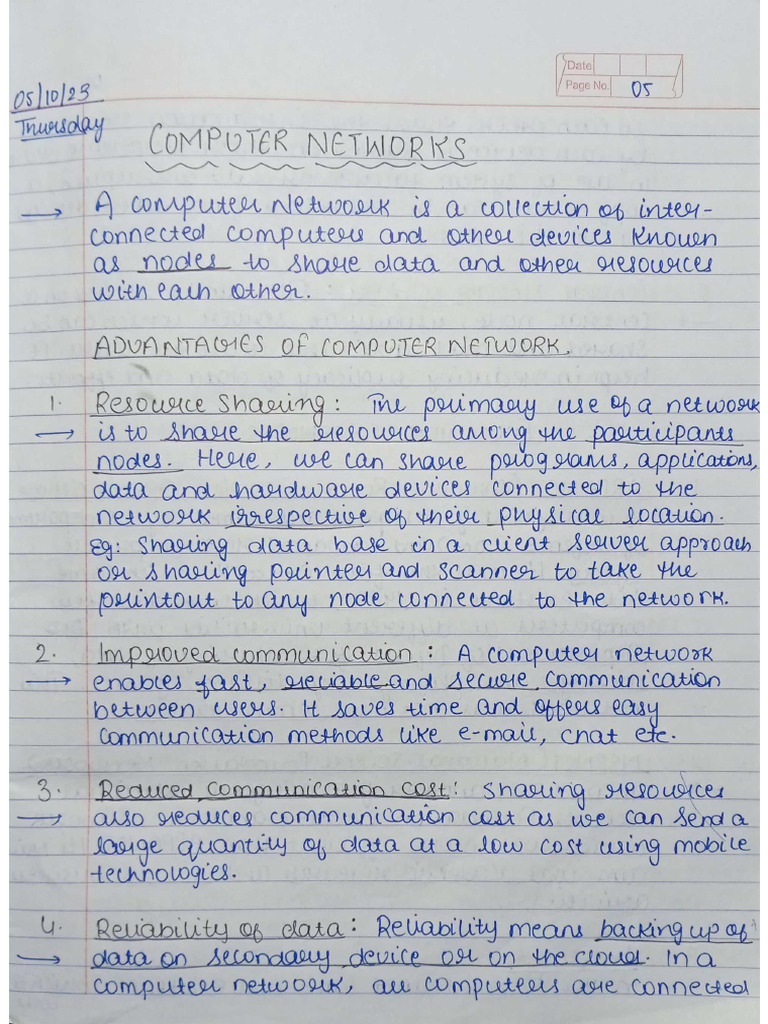 Date
Page No. 05
05/10/23
Thursday
COMPUTER NETWORKS
→ A computer Network is a collection of inter-
connected computers and other devices known
as nodes to share data and other resources
with each other.
ADVANTAGIES OF COMPUTER NETWORK.
1. Resource Sharing: The primary use of a network
→ is to share the resources among the participants
nodes. Here, we can share programs, applications,
data and hardware devices connected to the
network irrespective of their physical location.
Eg: Sharing data base in a client server approach
or sharing printer and scanner to take the
printout to any node connected to the network.
2. Improved communication: A computer network
→ enables fast, reliable and secure communication
between users. It saves time and offers easy
communication methods like e-mail, chat etc.
3. Reduced communication cost: Sharing resources
→ also reduces communication cost as we can send a
large quantity of data at a low cost using mobile
technologies.
4. Reliability of data: Reliability means backing up of
→ data on secondary device or on the cloud. In a
computer network, all computers are connected